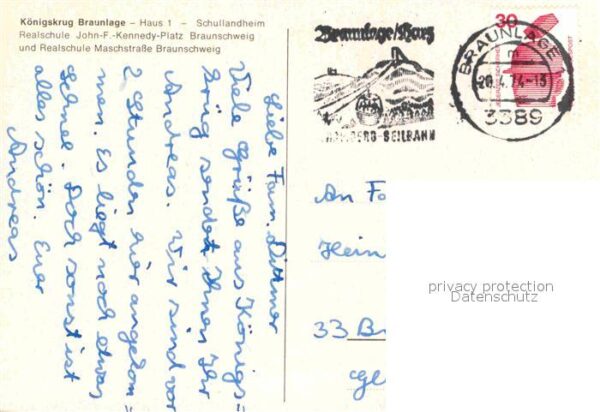 Königskrug Braunlage – Haus 1 – Schullandheim
Realschule John-F.-Kennedy-Platz Braunschweig
und Realschule Maschstraße Braunschweig
Liebe Fam. Dittmer
Viele Grüße aus Königs=
krug sendet Ihnen Ihr
Andreas. Wir sind vor
2 Stunden hier angekom=
men. Es liegt noch etwas
Schnee. Doch sonst ist
alles schön. Euer
Andreas
Braunlage/Harz
WURMBERG-SEILBAHN
30
BRAUNLAGE 1
m
20.4.74-13
3389
An Fa
Hein
33 B
privacy protection
Datenschutz